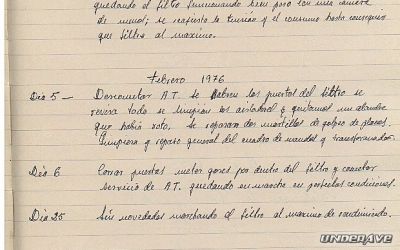 quedando el filtro funcionando bien pero con una camara
de menos; se reajusto la tension y el consumo hasta conseguir
que filtre al maximo.
Febrero 1976
Dia 5 — Desconectar A.T. se abren las puertas del filtro se
revisa todo se limpian los aisladores y quitamos un alambre
que habia roto, se reparan dos martillos de golpeo de placas.
Limpieza y repaso general del cuadro de mandos y transformador.
Dia 6 Cerrar puertas meter gases por dentro del filtro y conectar
servicio de A.T. quedando en marcha en perfectas condiciones.
Dia 25 Sin novedades marchando el filtro al maximo de rendimiento.
UNDERAVE